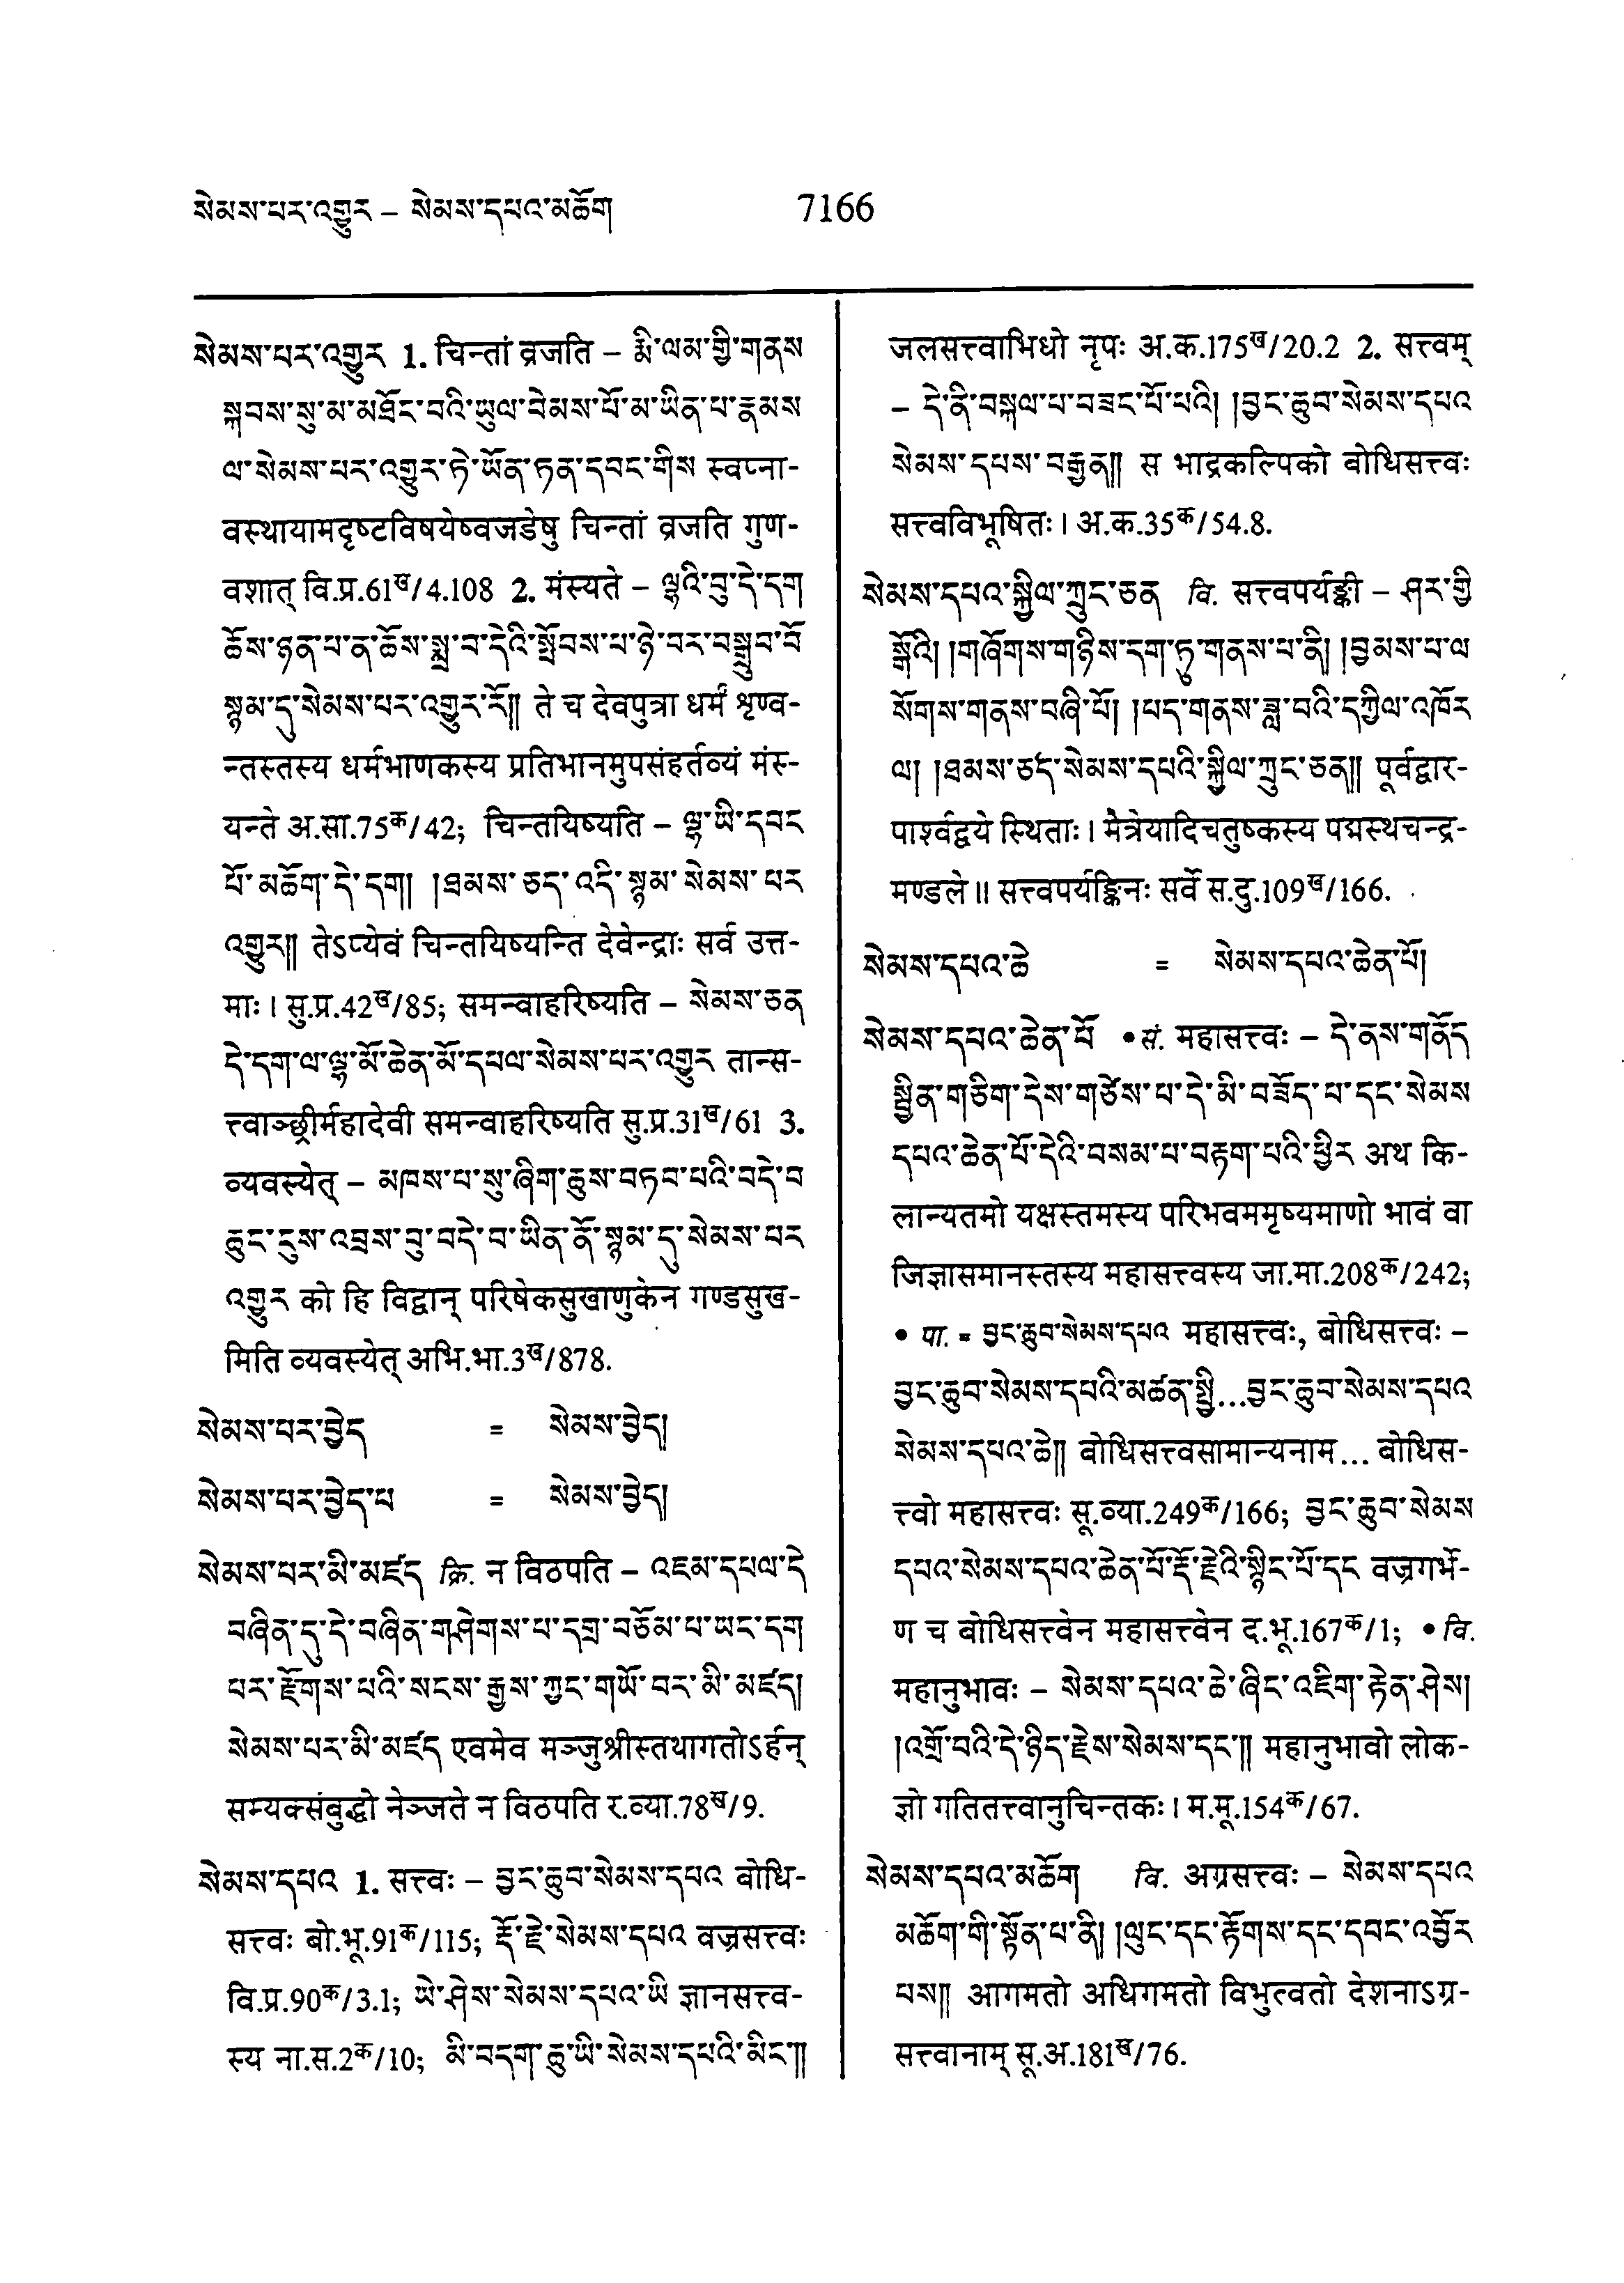 སེམས་པར་འགྱུར – སེམས་དཔའ་མཆོག
7166
སེམས་པར་འགྱུར 1. चिन्तां व्रजति – རྨི་ལམ་གྱི་གནས
སྐབས་སུ་མ་མཐོང་བའི་ཡུལ་བེམས་པོ་མ་ཡིན་པ་རྣམས
ལ་སེམས་པར་འགྱུར་ཏེ་ཡོན་ཏན་དབང་གིས स्वप्ना-
वस्थायामदृष्टविषयेष्वजडेषु चिन्तां व्रजति गुण-
वशात् वि.प्र.61ख/4.108 2. मंस्यते – ལྷའི་བུ་དེ་དག
ཆོས་ཉན་པ་ན་ཆོས་སྨྲ་བ་དེའི་སྤོབས་པ་ཉེ་བར་བསྒྲུབ་བོ
སྙམ་དུ་སེམས་པར་འགྱུར་རོ༎ ते च देवपुत्रा धर्मं शृण्व-
न्तस्तस्य धर्मभाणकस्य प्रतिभानमुपसंहर्तव्यं मंस-
यन्ते अ.सा.75क/42; चिन्तयिष्यति – ལྷ་ཡི་དབང
པོ་མཆོག་དེ་དག། །ཐམས་ཅད་འདི་སྙམ་སེམས་པར
འགྱུར༎ तेऽप्येवं चिन्तयिष्यन्ति देवेन्द्राः सर्व उत्त-
माः। सु.प्र.42ख/85; समन्वाहरिष्यति – སེམས་ཅན
དེ་དག་ལ་ལྷ་མོ་ཆེན་མོ་དཔལ་སེམས་པར་འགྱུར तान्स-
त्त्वाञ्छ्रीर्महादेवी समन्वाहरिष्यति सु.प्र.31ख/61 3.
व्यवस्येत् – མཁས་པ་སུ་ཞིག་ཆུས་བཏབ་པའི་བདེ་བ
ཆུང་ངུས་འབྲས་བུ་བདེ་བ་ཡིན་ནོ་སྙམ་དུ་སེམས་པར
འགྱུར को हि विद्वान् परिषेकसुखाणुकेन गण्डसुख-
मिति व्यवस्येत् अभि.भा.3ख/878.
སེམས་པར་བྱེད = སེམས་བྱེད།
སེམས་པར་བྱེད་པ = སེམས་བྱེད།
སེམས་པར་མི་མཛད क्रि. न विठपति – འཇམ་དཔལ་དེ
བཞིན་དུ་དེ་བཞིན་གཤེགས་པ་དགྲ་བཅོམ་པ་ཡང་དག
པར་རྫོགས་པའི་སངས་རྒྱས་ཀྱང་གཡོ་བར་མི་མཛད།
སེམས་པར་མི་མཛད एवमेव मञ्जुश्रीस्तथागतोऽर्हन्
सम्यक्संबुद्धो नेञ्जते न विठपति र.व्या.78ख/9.
སེམས་དཔའ 1. सत्त्वः – བྱང་ཆུབ་སེམས་དཔའ बोधि-
सत्त्वः बो.भू.91क/115; རྡོ་རྗེ་སེམས་དཔའ वज्रसत्त्वः
वि.प्र.90क/3.1; ཡེ་ཤེས་སེམས་དཔའ་ཡི ज्ञानसत्त्व-
स्य ना.स.2क/10; མི་བདག་ཆུ་ཡི་སེམས་དཔའི་མིང་༎
जलसत्त्वाभिधो नृपः अ.क.175ख/20.2 2. सत्त्वम्
– དེ་ནི་བསྐལ་པ་བཟང་པོ་པའི། །བྱང་ཆུབ་སེམས་དཔའ
སེམས་དཔས་བརྒྱན༎ स भाद्रकल्पिको बोधिसत्त्वः
सत्त्वविभूषितः। अ.क.35क/54.8.
སེམས་དཔའ་སྐྱིལ་ཀྲུང་ཅན वि. सत्त्वपर्यङ्की – ཤར་གྱི
སྒོའི། །གཞོགས་གཉིས་དག་ཏུ་གནས་པ་ནི། །བྱམས་པ་ལ
སོགས་གནས་བཞི་པོ། །པད་གནས་ཟླ་བའི་དཀྱིལ་འཁོར
ལ། །ཐམས་ཅད་སེམས་དཔའི་སྐྱིལ་ཀྲུང་ཅན༎ पूर्वद्वार-
पार्श्वद्वये स्थिताः। मैत्रेयादिचतुष्कस्य पद्मस्थचन्द्र-
मण्डले॥ सत्त्वपर्यङ्किनः सर्वे स.दु.109ख/166.
སེམས་དཔའ་ཆེ = སེམས་དཔའ་ཆེན་པོ།
སེམས་དཔའ་ཆེན་པོ • सं. महासत्त्वः – དེ་ནས་གནོད
སྦྱིན་གཅིག་དེས་གཙེས་པ་དེ་མི་བཟོད་པ་དང་སེམས
དཔའ་ཆེན་པོ་དེའི་བསམ་པ་བརྟག་པའི་ཕྱིར अथ कि-
लान्यतमो यक्षस्तमस्य परिभवममृष्यमाणो भावं वा
जिज्ञासमानस्तस्य महासत्त्वस्य जा.मा.208क/242;
• पा. = བྱང་ཆུབ་སེམས་དཔའ महासत्त्वः, बोधिसत्त्वः –
བྱང་ཆུབ་སེམས་དཔའི་མཚན་སྤྱི...བྱང་ཆུབ་སེམས་དཔའ
སེམས་དཔའ་ཆེ༎ बोधिसत्त्वसामान्यनाम... बोधिस-
त्त्वो महासत्त्वः सू.व्या.249क/166; བྱང་ཆུབ་སེམས
དཔའ་སེམས་དཔའ་ཆེན་པོ་རྡོ་རྗེའི་སྙིང་པོ་དང वज्रगर्भे-
ण च बोधिसत्त्वेन महासत्त्वेन द.भू.167क/1; • वि.
महानुभावः – སེམས་དཔའ་ཆེ་ཞིང་འཇིག་རྟེན་ཤེས།
།འགྲོ་བའི་དེ་ཉིད་རྗེས་སེམས་དང་༎ महानुभावो लोक-
ज्ञो गतितत्त्वानुचिन्तकः। म.मू.154क/67.
སེམས་དཔའ་མཆོག वि. अग्रसत्त्वः – སེམས་དཔའ
མཆོག་གི་སྟོན་པ་ནི། །ལུང་དང་རྟོགས་དང་དབང་འབྱོར
པས༎ आगमतो अधिगमतो विभुत्वतो देशनाऽग्र-
सत्त्वानाम् सू.अ.181ख/76.